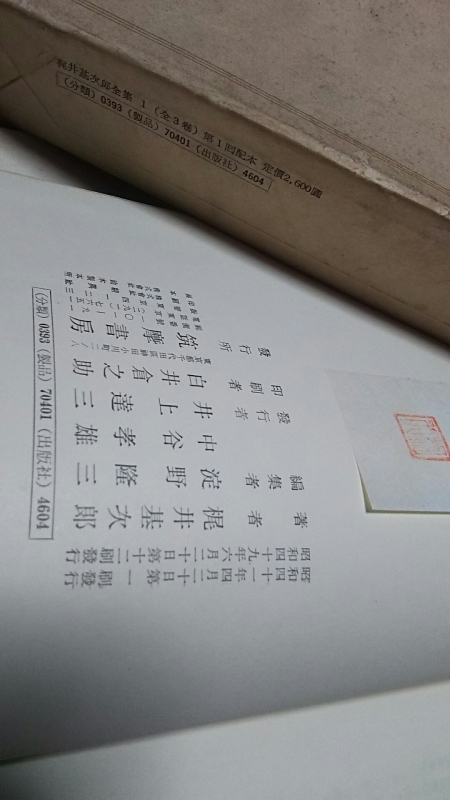 梶井基次郎全集 1 （全3巻）第1回配本 定價2,600圓
（分類）0393（製品）70401（出版社）4604
昭和四十一年四月二十日第一刷發行
昭和四十九年六月三十日第十二刷發行
著者 梶井基次郎
編集者 淀野隆三
中谷孝雄
發行者 井上達三
印刷者 白井倉之助
發行所 筑摩書房
東京都千代田區神田小川町二ノ八
（分類）0393（製品）70401（出版社）4604